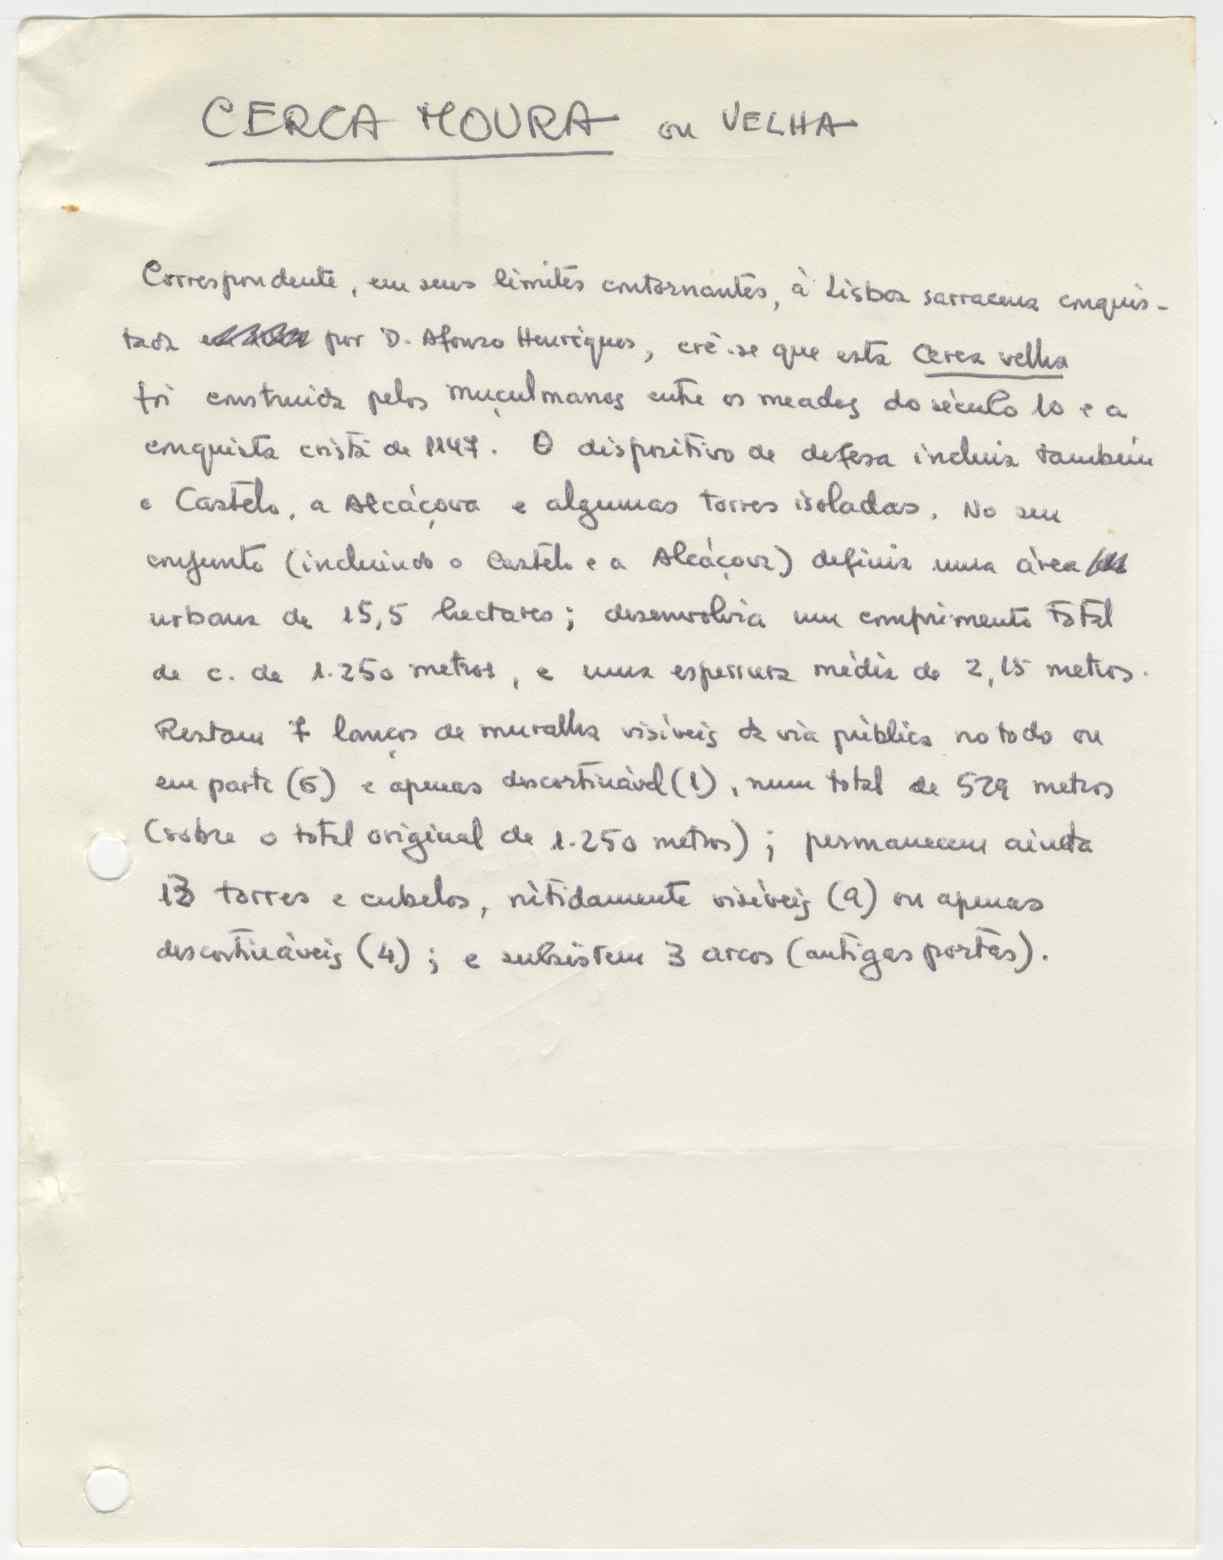 CERCA MOURA ou VELHA
Correspondente, em seus limites contornantes, à Lisboa sarracena conquis-
tada por D. Afonso Henriques, crê-se que esta Cerca velha
foi construida pelos muçulmanos entre os meados do século 10 e a
conquista cristã de 1147. O dispositivo de defesa incluia também
o Castelo, a Alcáçova e algumas torres isoladas. No seu
conjunto (incluindo o Castelo e a Alcáçova) definia uma área
urbana de 15,5 hectares; desenvolvia um comprimento total
de c. de 1.250 metros, e uma espessura média de 2,15 metros.
Restam 7 lanços de muralha visíveis da via pública no todo ou
em parte (6) e apenas descortinável (1), num total de 529 metros
(sobre o total original de 1.250 metros); permanecem ainda
13 torres e cubelos, nitidamente visíveis (9) ou apenas
descortináveis (4); e subsistem 3 arcos (antigas portas).